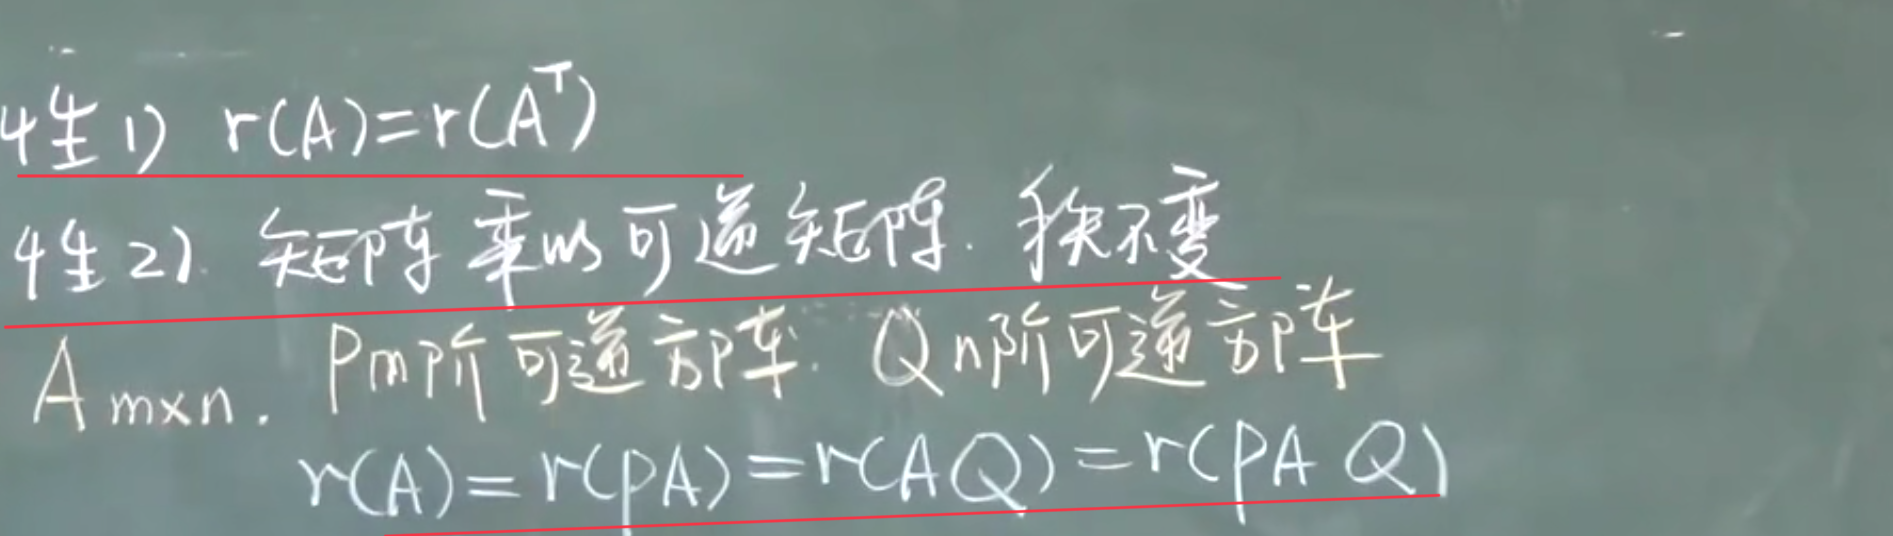 性1) r(A)=r(Aᵀ)
性2). 矩阵乘以可逆矩阵. 秩不变
A m×n. P m阶可逆方阵. Q n阶可逆方阵
r(A)=r(PA)=r(AQ)=r(PAQ)